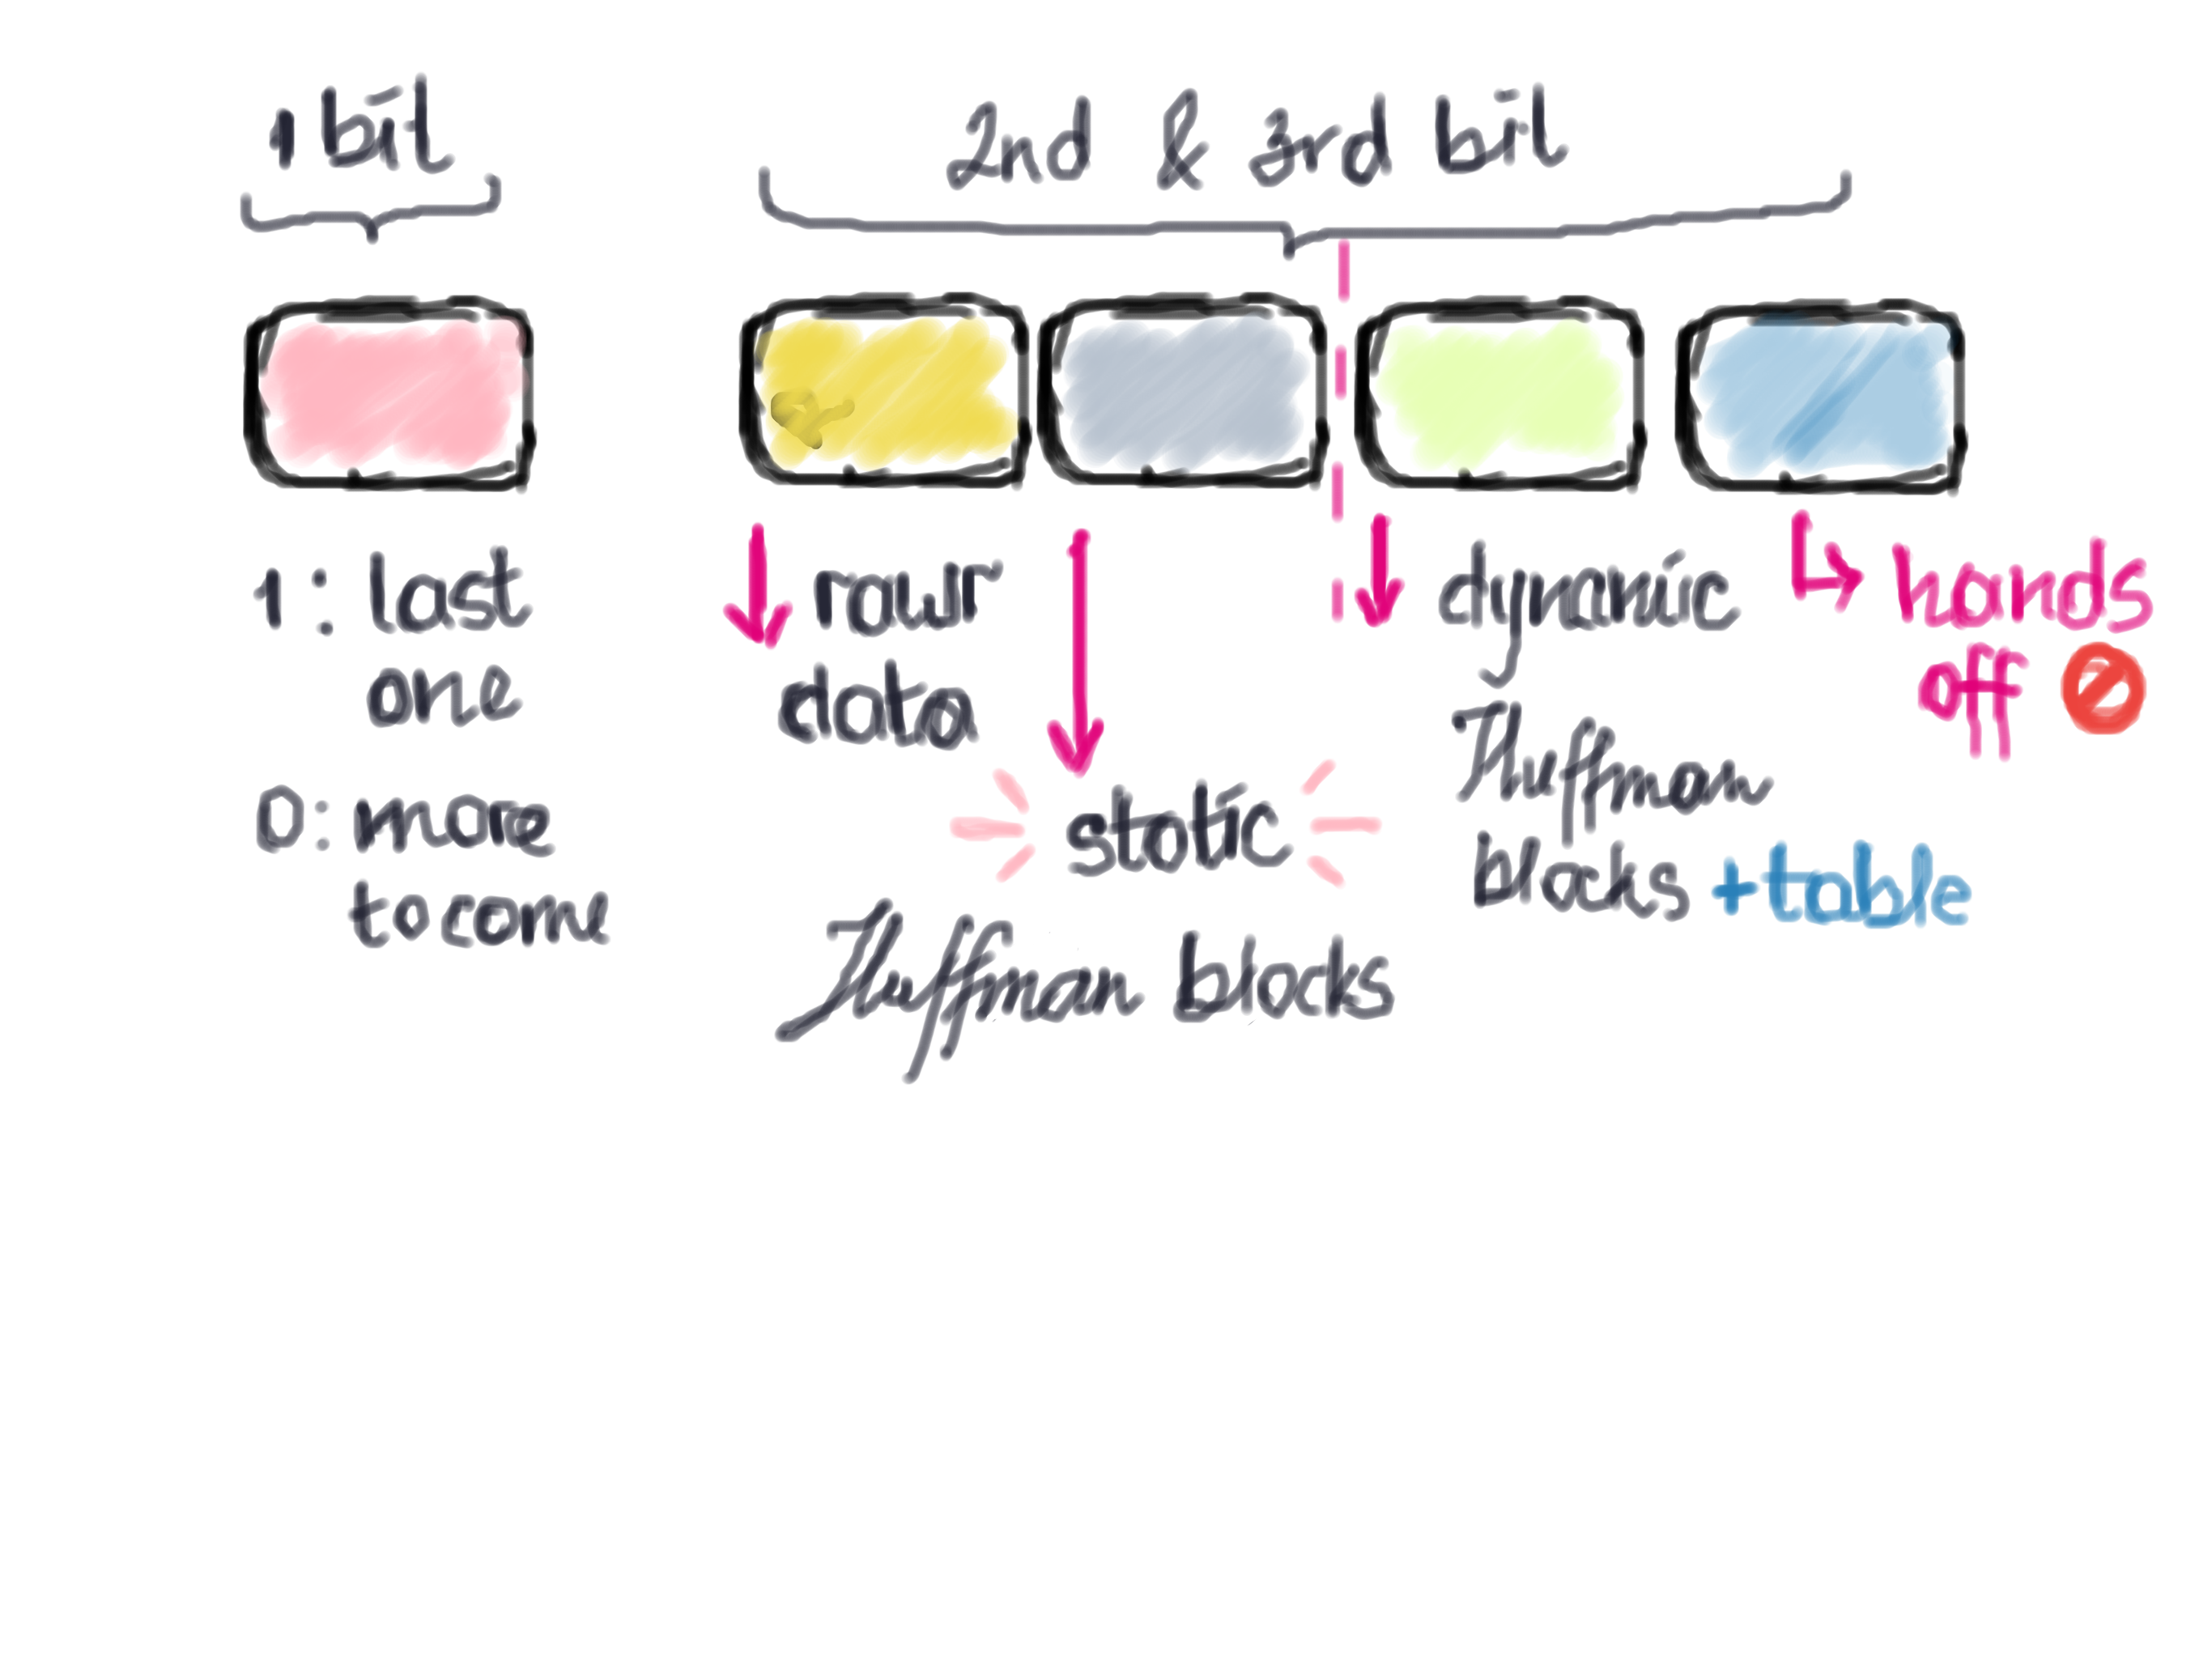 1 bit
2nd & 3rd bit
1: last
one
0: more
to come
raw
data
static
Huffman blocks
dynamic
Huffman
blocks +table
hands
off